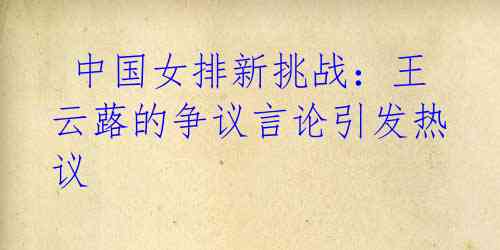 中国女排新挑战：王
云蕗的争议言论引发热
议